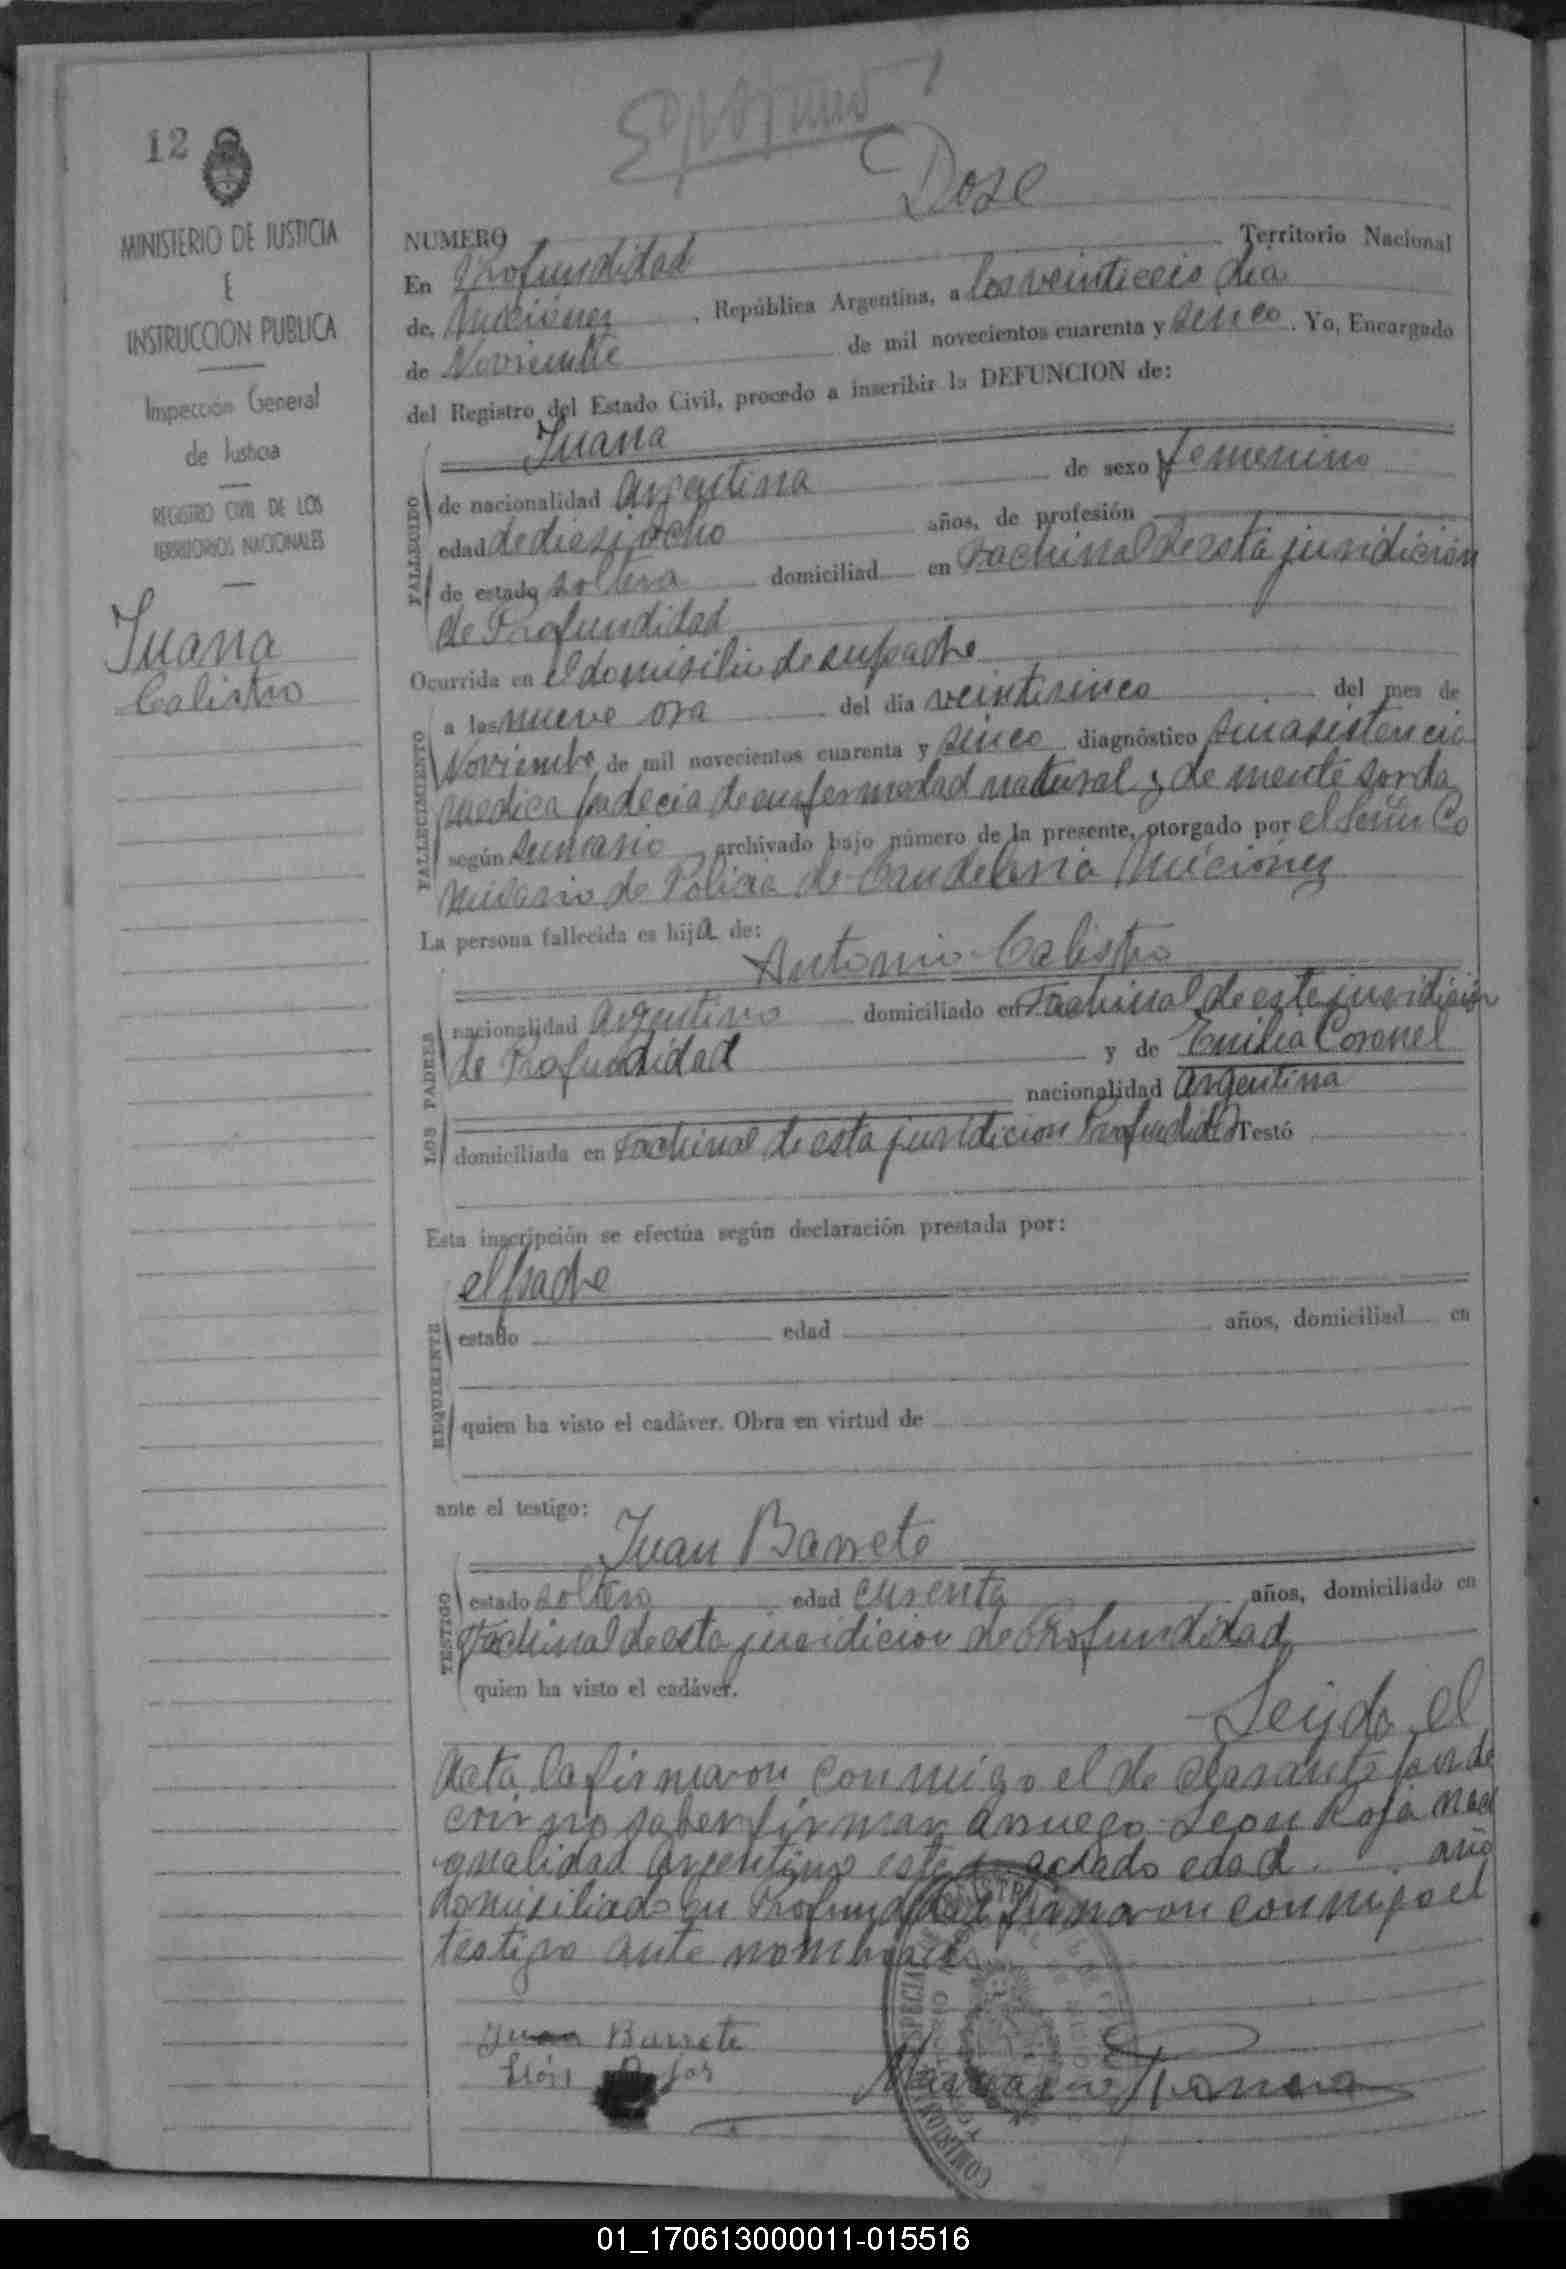 12
MINISTERIO DE JUSTICIA
E
INSTRUCCION PUBLICA
Inspección General
de Justicia
REGISTRO CIVIL DE LOS
TERRITORIOS NACIONALES
Juana
Calistro
Dose
NUMERO
En Profundidad Territorio Nacional
de, Miciones, República Argentina, a los veinticeis dia
de Noviembre de mil novecientos cuarenta y sinco. Yo, Encargado
del Registro del Estado Civil, procedo a inscribir la DEFUNCION de:
Juana
FALLECIDO
de nacionalidad argentina de sexo femenino
edad de diesiocho años, de profesión
de estado soltera domiciliad en Fachinal de esta juridicion
de Profundidad
Ocurrida en el domisilio de su padre
FALLECIMIENTO
a las nueve ora del día veintisinco del mes de
Noviembre de mil novecientos cuarenta y sinco diagnóstico sin asistencia
medica padecia de enfermedad natural y de mente sorda
según sumario archivado bajo número de la presente, otorgado por el Señor Co
misario de Policia de Candelaria Miciones
La persona fallecida es hija de:
Antonio Calistro
LOS PADRES
nacionalidad argentino domiciliado en Fachinal de este juridicion
de Profundidad y de Emilia Coronel
nacionalidad argentina
domiciliada en Fachinal de esta juridicion Profundidad Testó
Esta inscripción se efectúa según declaración prestada por:
el padre
REQUIRENTE
estado edad años, domiciliad en
quien ha visto el cadáver. Obra en virtud de
ante el testigo:
Juan Barrete
TESTIGO
estado soltero edad curenta años, domiciliado en
Fachinal de esta juridicion de Profundidad
quien ha visto el cadáver.
Leydo el
acta la firmaron conmigo el de clarante por de
crir no saber firmar a ruego Leon Roja naci
onalidad argentino edad año
domisiliado en Profundidad firmaron conmigo el
testigo ante nombrado
Juan Barrete
León Rojas
01_170613000011-015516